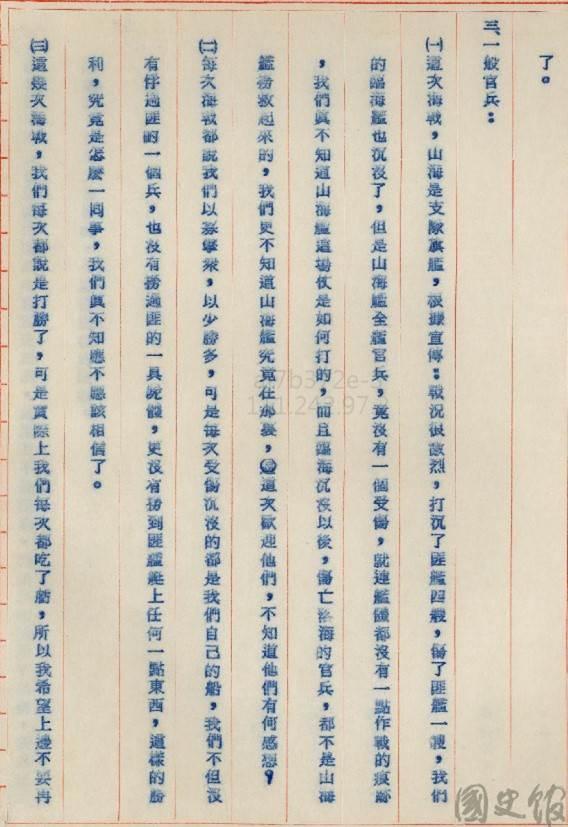 了。
三、一般官兵：
㈠這次海戰，山海是支隊旗艦，根據宣傳：戰況很激烈，打沉了匪艦四艘，傷了匪艦一艘，我們
的臨海艦也沉沒了，但是山海艦全艦官兵，竟沒有一個受傷，就連艦體都沒有一點作戰的痕跡
，我們真不知道山海艦這場仗是如何打的，而且臨海沉沒以後，傷亡落海的官兵，都不是山海
艦撈救起來的，我們更不知道山海艦究竟在那裏，這次歡迎他們，不知道他們有何感想？
㈡每次海戰都說我們以寡擊衆，以少勝多，可是每次受傷沉沒的都是我們自己的船，我們不但沒
有俘過匪的一個兵，也沒有撈過匪的一具屍體，更沒有撈到匪艦艇上任何一點東西，這樣的勝
利，究竟是怎麼一回事，我們真不知應不應該相信了。
㈢這幾次海戰，我們每次都說是打勝了，可是實際上我們每次都吃了虧，所以我希望上邊不要再
國史館